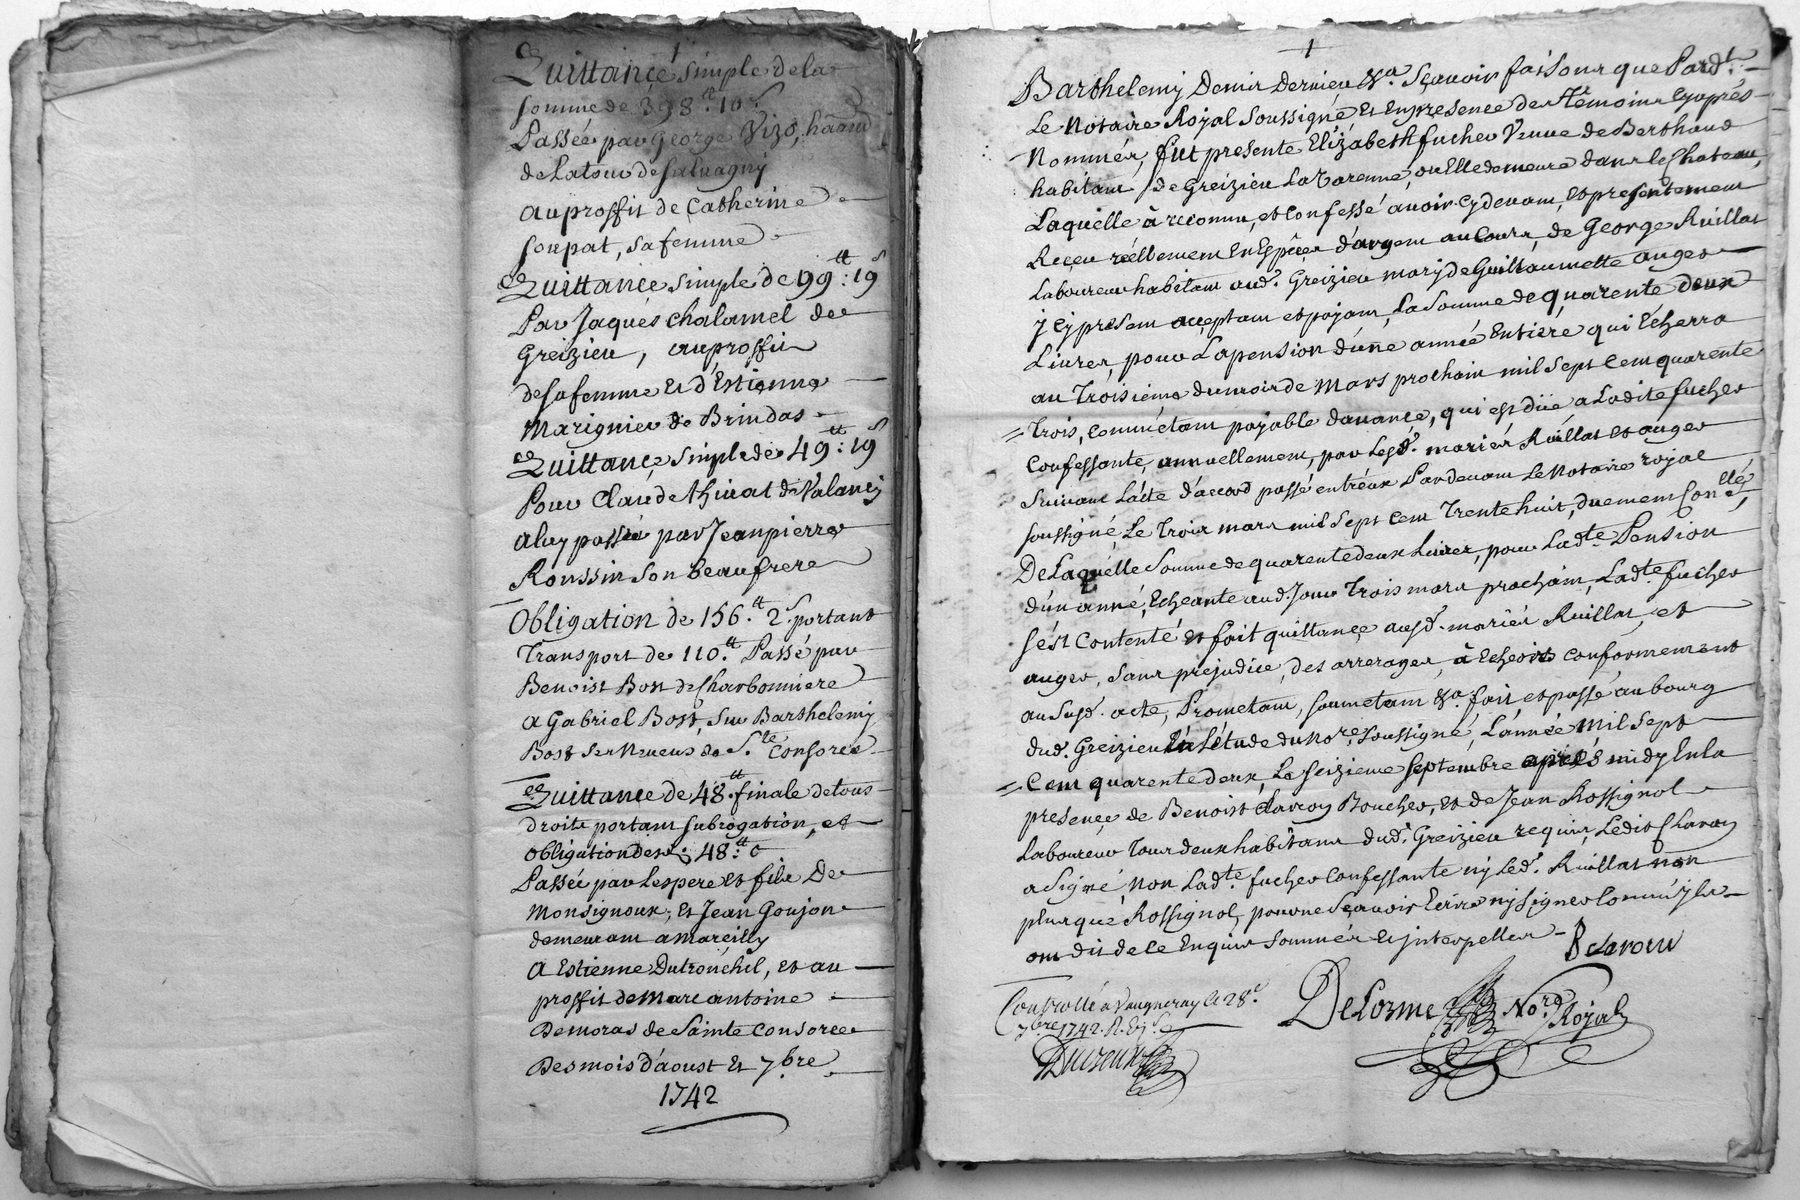 Quittance simple de la
somme de 398.tt 10.s
Passée par George Vizo, hâant
de Latour de Salvagny
au proffit de Catherine
soupat, sa femme
Quittance simple de 99.tt: 19s
Par Jaques chalamel de
Greizieu, au proffit
de sa femme Et d'Estienne
Marignier de Brindas
Quittance simple de 49.tt: 19s
Pour Claude thivat de Valancy
a luy passée par Jean pierre
Roussin son beaufrere
Obligation de 156.tt 2.s portant
Transport de 110.tt Passé par
Benoist Bost de Charbonniere
a Gabriel Bost, sur Barthelemy
Bost ses neveus de S.te Consorce
Quittance de 48.tt finale de tous
droits portant subrogation, et
obligation de 48.tt 0
Passée par Les pere et fils De
Monsignoux, et Jean Goujon
demeurant a Marcilly
a Estienne Dutronchil, et au
proffit de Marc antoine
Demoras de Sainte Consorce
Des mois d'aoust Et 7bre
1742
Barthelemy Demir Dernieu &a. Sçavoir faisons que Pardt.
Le Notaire Royal soussigné Et En presence des témoins cy apres
Nommés, fut presente Elizabeth fucher Veuve de Berthaud
habitant de Greizieu La Varenne, ou Elle demeure dans le Chateau,
Laquelle à reconnu, et confessé avoir cy devant, et presentement
Reçeu réellement En Espêces d'argent au cours, de George Ruillat
Laboureur habitant aud. Greizieu mary de Guillaumette auger
y cy present acceptant et payant, La somme de quarente deux
Livres, pour La pension d'une année Entiére qui Echerra
au Troisième du mois de Mars prochain mil sept cent quarente
Trois, comme étant payable d'avance, qui est düe a Ladite fucher
Confessante, annuellement, par Lesd. mariés Ruillat et auger
suivant L'acte d'accord passé entr'eux Pardevant Le Notaire royal
soussigné, Le Trois mars mil sept cent Trente huit, duement Con.llé,
De Laquelle somme de quarente deux Livres, pour Lad.te Pension
d'un anné, Echeante aud. Jour Trois mars prochain, Lad.te fucher
s'ést Contenté et fait quittance ausd. mariés Ruillat, et
auger, sans prejudice, des arrerages, à Echeoir conformement
au susd. acte, Prometant, soumetant &a. fait et passé au bourg
dud. Greizieu En L'étude du No.re soussigné, L'année Mil Sept
Cent quarente deux, Le seizieme septembre après midy En la
presence de Benoist Clavou Boucher, et de Jean Rossignol
Laboureur Tous deux habitans dud. Greizieu requis, Ledit Clavou
a signé non Lad.te fucher Confessante ny Led. Ruillat non
plus que Rossignol, pour ne sçavoir Ecrire ny signer Comme jls
ont dit de ce Enquis Sommés et jnterpellés
B clavou
Controllé a Vaugneray le 28.e
7bre 1742. R.
DeLorme No.re Royal